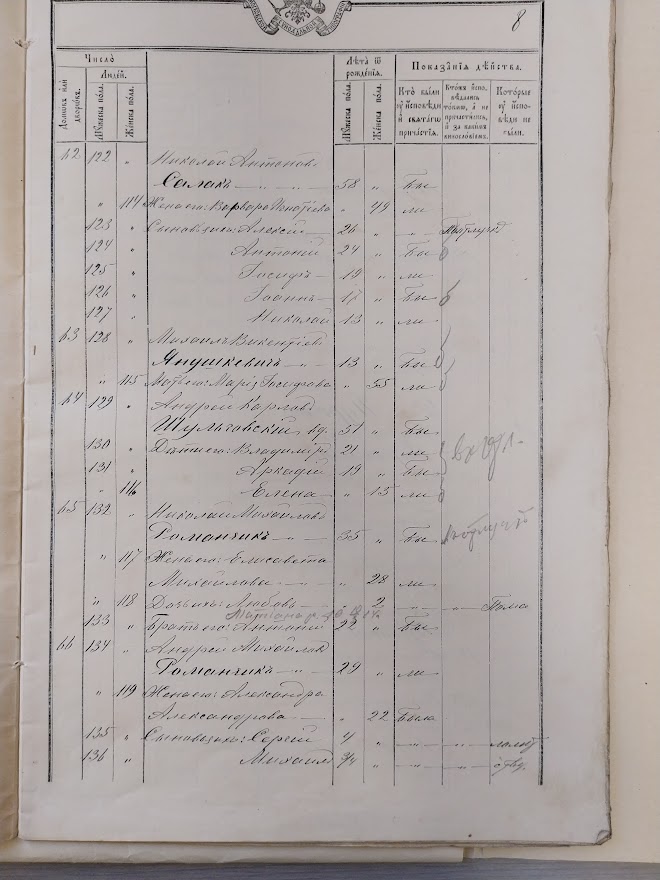 8
Число
Людей.
Домовъ или дворовъ.
Мужеска пола.
Женска пола.
Лѣта ѿ рожденїя.
Мужеска пола.
Женска пола.
Показанїя дѣйства.
Кто были у исповѣди и святаго причастїя.
Кто же исповѣдались токмо, а не причастились, и за какимъ винословіемъ.
Которые у исповѣди не были.
62 122 " Николай Антоновъ
Салакъ 58 " бы
" 114 Жена его: Варвара Игнатіева " 49 ли
123 " Сыновья ихъ: Алексѣй 26 " "
124 " Антоній 24 " бы
125 " Іосифъ 19 " ли
126 " Іоаннъ 17 " бы
127 " Николай 13 " ли
63 128 " Михаилъ Викентіевъ
Янушкевичъ 13 " бы
" 115 Мать его: Марія Іосифова " 35 ли
64 129 " Андрей Карловъ
Шульговскій вд. 51 " бы
130 " Дѣти его: Владиміръ 21 " ли
131 " Аркадій 19 " бы
" 116 Елена " 15 ли
65 132 " Николай Михайловъ
Романчикъ 35 " бы
" 117 Жена его: Елисавета
Михайлова " 28 ли
" 118 Дочь ихъ: Любовь " 2 " "
133 " Братъ его: Антоній 22 " бы
66 134 " Андрей Михайловъ
Романчикъ 29 " ли
" 119 Жена его: Александра
Александрова " 22 была
135 " Сыновья ихъ: Сергій 4 " " "
136 " Михаилъ 3/4 " " "